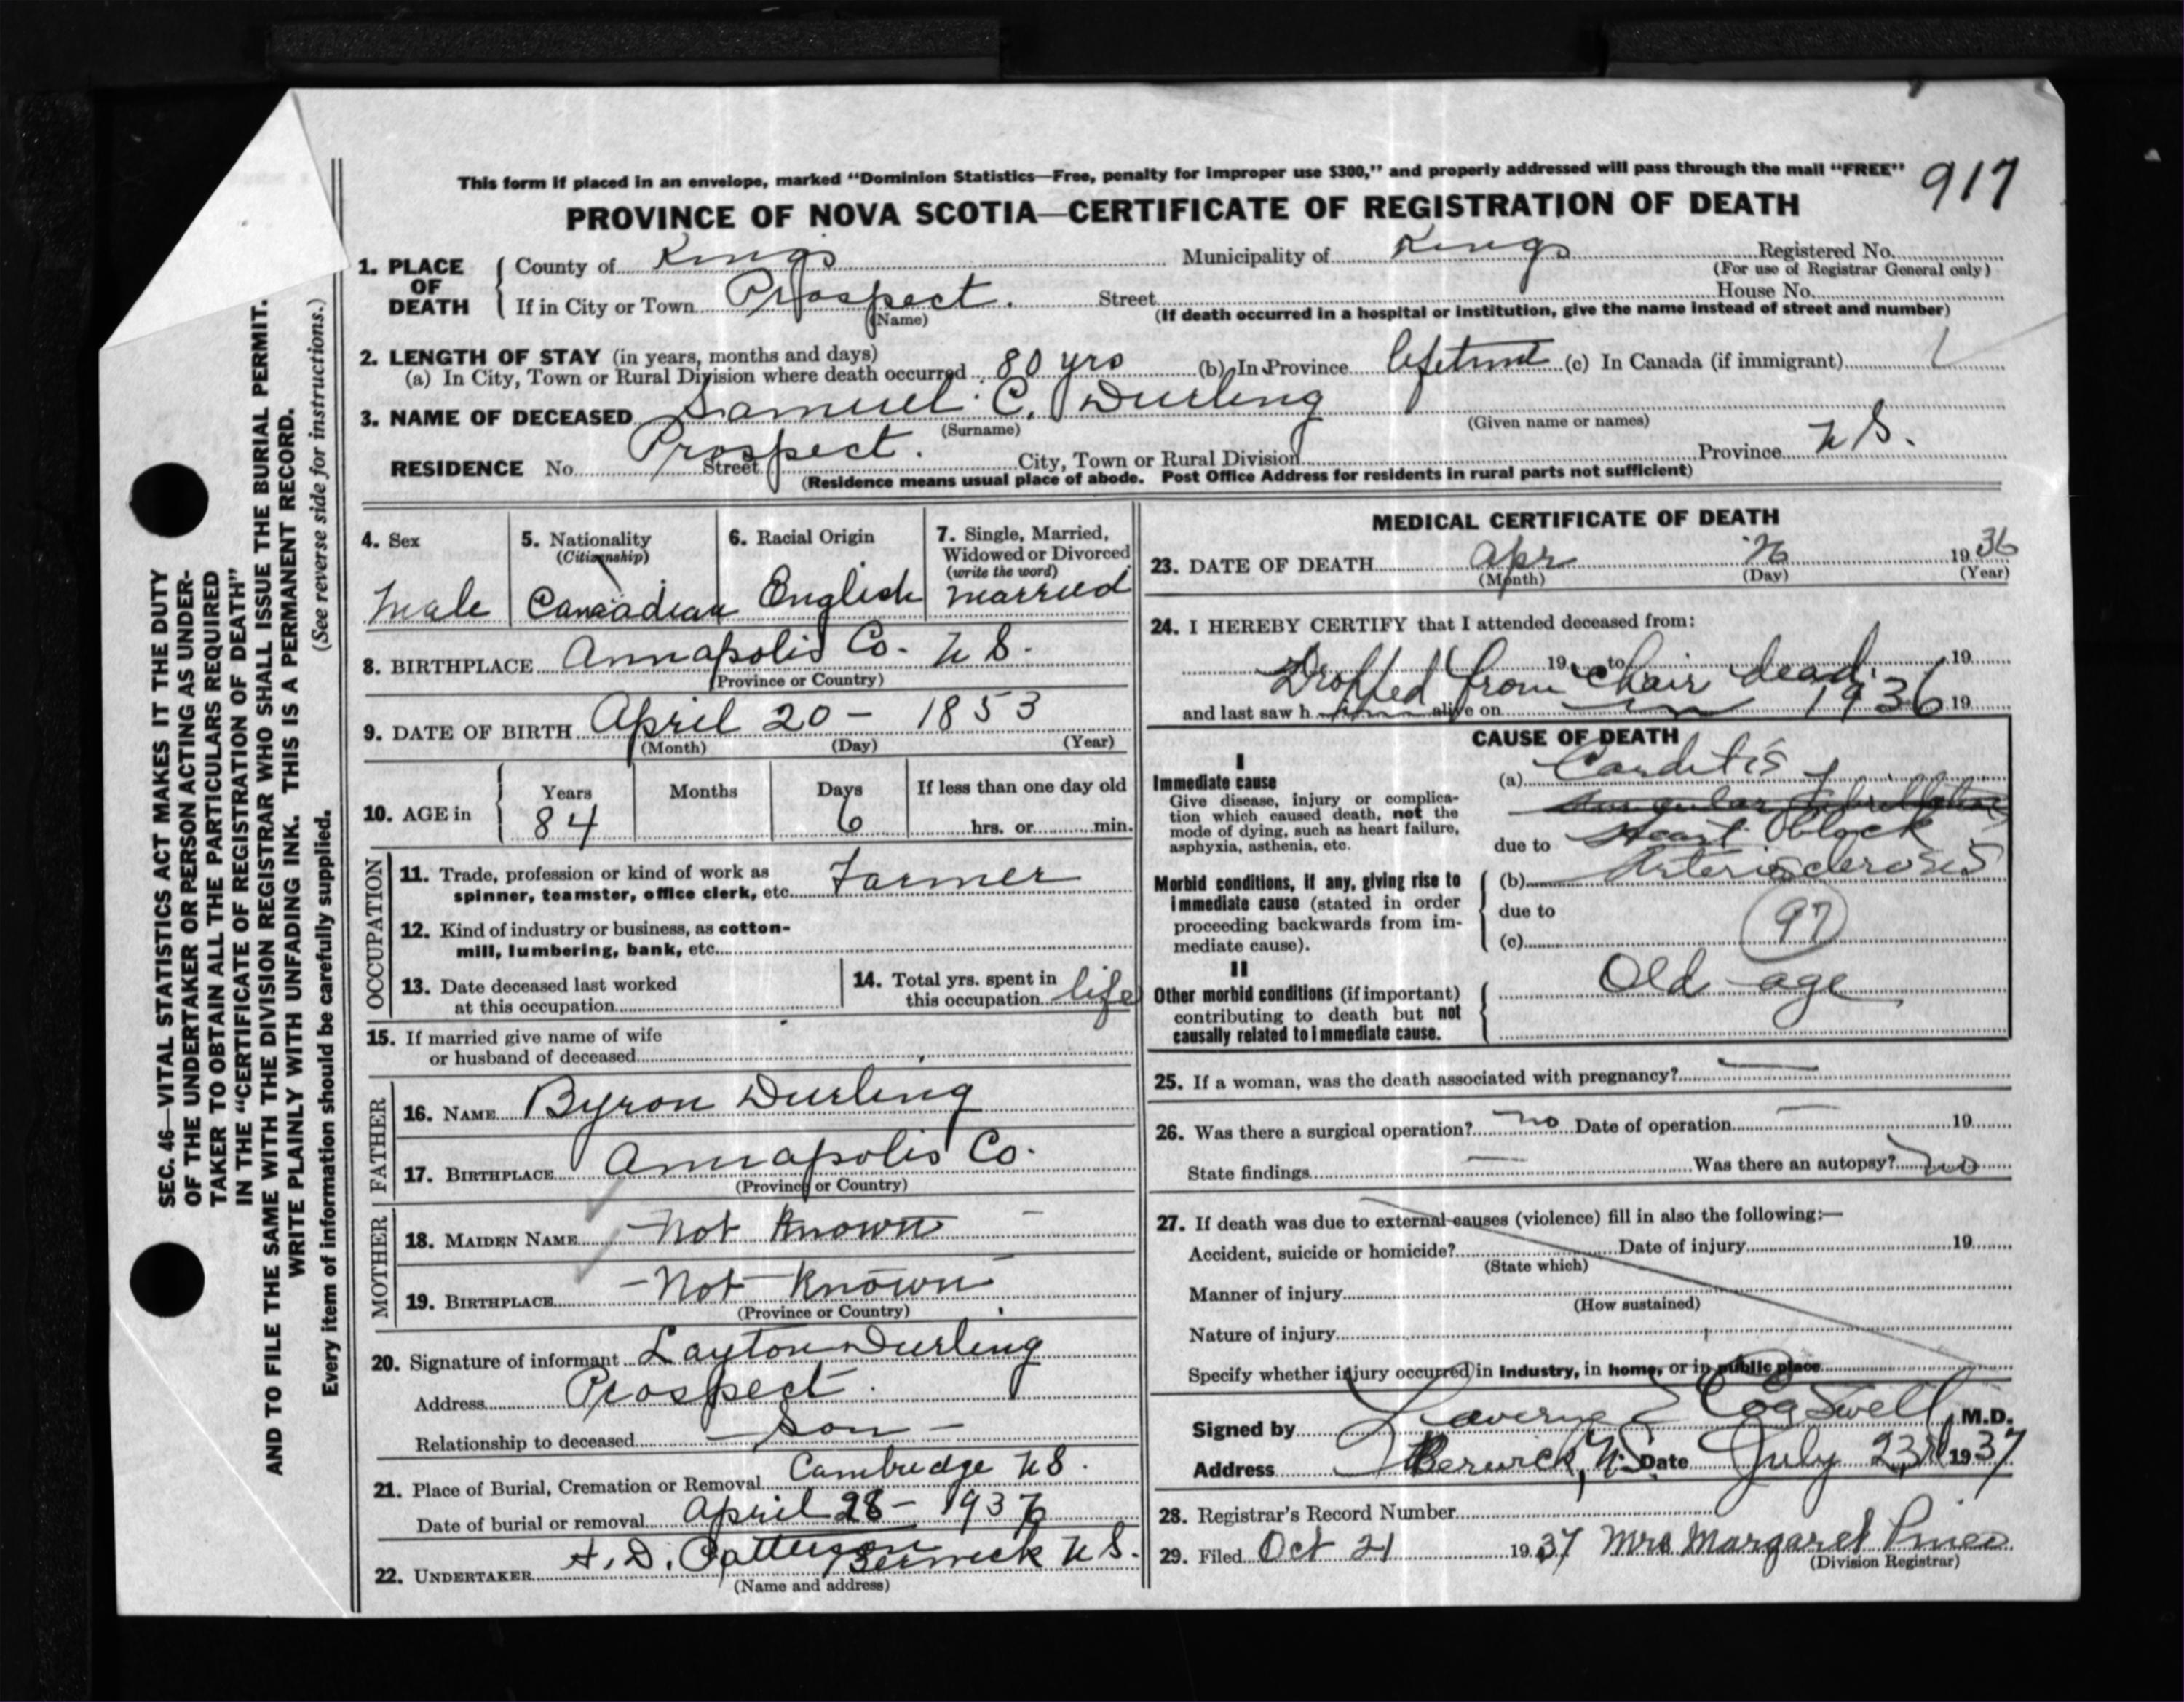 This form if placed in an envelope, marked “Dominion Statistics—Free, penalty for improper use $300,” and properly addressed will pass through the mail “FREE” 917
PROVINCE OF NOVA SCOTIA—CERTIFICATE OF REGISTRATION OF DEATH
1. PLACE OF DEATH County of Kings Municipality of Kings Registered No.
(For use of Registrar General only)
If in City or Town Prospect. Street House No.
(Name) (If death occurred in a hospital or institution, give the name instead of street and number)
2. LENGTH OF STAY (in years, months and days)
(a) In City, Town or Rural Division where death occurred 80 yrs (b) In Province lifetime (c) In Canada (if immigrant)
3. NAME OF DECEASED Samuel C. Durling
(Surname) (Given name or names)
RESIDENCE No. Prospect. Street City, Town or Rural Division Province N S.
(Residence means usual place of abode. Post Office Address for residents in rural parts not sufficient)
4. Sex Male
5. Nationality (Citizenship) Canadian
6. Racial Origin English
7. Single, Married, Widowed or Divorced (write the word) married
8. BIRTHPLACE Annapolis Co. N S.
(Province or Country)
9. DATE OF BIRTH April 20 - 1853
(Month) (Day) (Year)
10. AGE in Years 84 Months Days 6 If less than one day old hrs. or min.
OCCUPATION
11. Trade, profession or kind of work as spinner, teamster, office clerk, etc. Farmer
12. Kind of industry or business, as cotton-mill, lumbering, bank, etc.
13. Date deceased last worked at this occupation
14. Total yrs. spent in this occupation life
15. If married give name of wife or husband of deceased
FATHER
16. NAME Byron Durling
17. BIRTHPLACE Annapolis Co.
(Province or Country)
MOTHER
18. MAIDEN NAME Not Known -
19. BIRTHPLACE - Not Known -
(Province or Country)
20. Signature of informant Layton Durling
Address Prospect.
Relationship to deceased - Son -
21. Place of Burial, Cremation or Removal Cambridge N S.
Date of burial or removal April 28 - 1936
22. UNDERTAKER A. D. Patterson Berwick N S.
(Name and address)
MEDICAL CERTIFICATE OF DEATH
23. DATE OF DEATH Apr 26 1936
(Month) (Day) (Year)
24. I HEREBY CERTIFY that I attended deceased from:
19 to 19
Dropped from chair dead.
and last saw h alive on 1936 19
CAUSE OF DEATH
I
Immediate cause (a) Carditis
Give disease, injury or complication which caused death, not the mode of dying, such as heart failure, asphyxia, asthenia, etc.
due to Heart block
Morbid conditions, if any, giving rise to immediate cause (stated in order proceeding backwards from immediate cause).
(b) Arteriosclerosis
due to 97
(c)
II
Other morbid conditions (if important) contributing to death but not causally related to immediate cause.
Old age
25. If a woman, was the death associated with pregnancy? —
26. Was there a surgical operation? no Date of operation — 19
State findings — Was there an autopsy? no
27. If death was due to external causes (violence) fill in also the following:—
Accident, suicide or homicide? Date of injury 19
(State which)
Manner of injury
(How sustained)
Nature of injury
Specify whether injury occurred in industry, in home, or in public place
Signed by Cogswell M.D.
Address Berwick, N.S. Date July 23rd 1937
28. Registrar's Record Number
29. Filed Oct 21 1937 Mrs Margaret Pineo
(Division Registrar)
SEC. 46—VITAL STATISTICS ACT MAKES IT THE DUTY
OF THE UNDERTAKER OR PERSON ACTING AS UNDER-
TAKER TO OBTAIN ALL THE PARTICULARS REQUIRED
IN THE “CERTIFICATE OF REGISTRATION OF DEATH”
AND TO FILE THE SAME WITH THE DIVISION REGISTRAR WHO SHALL ISSUE THE BURIAL PERMIT.
WRITE PLAINLY WITH UNFADING INK. THIS IS A PERMANENT RECORD.
Every item of information should be carefully supplied. (See reverse side for instructions.)